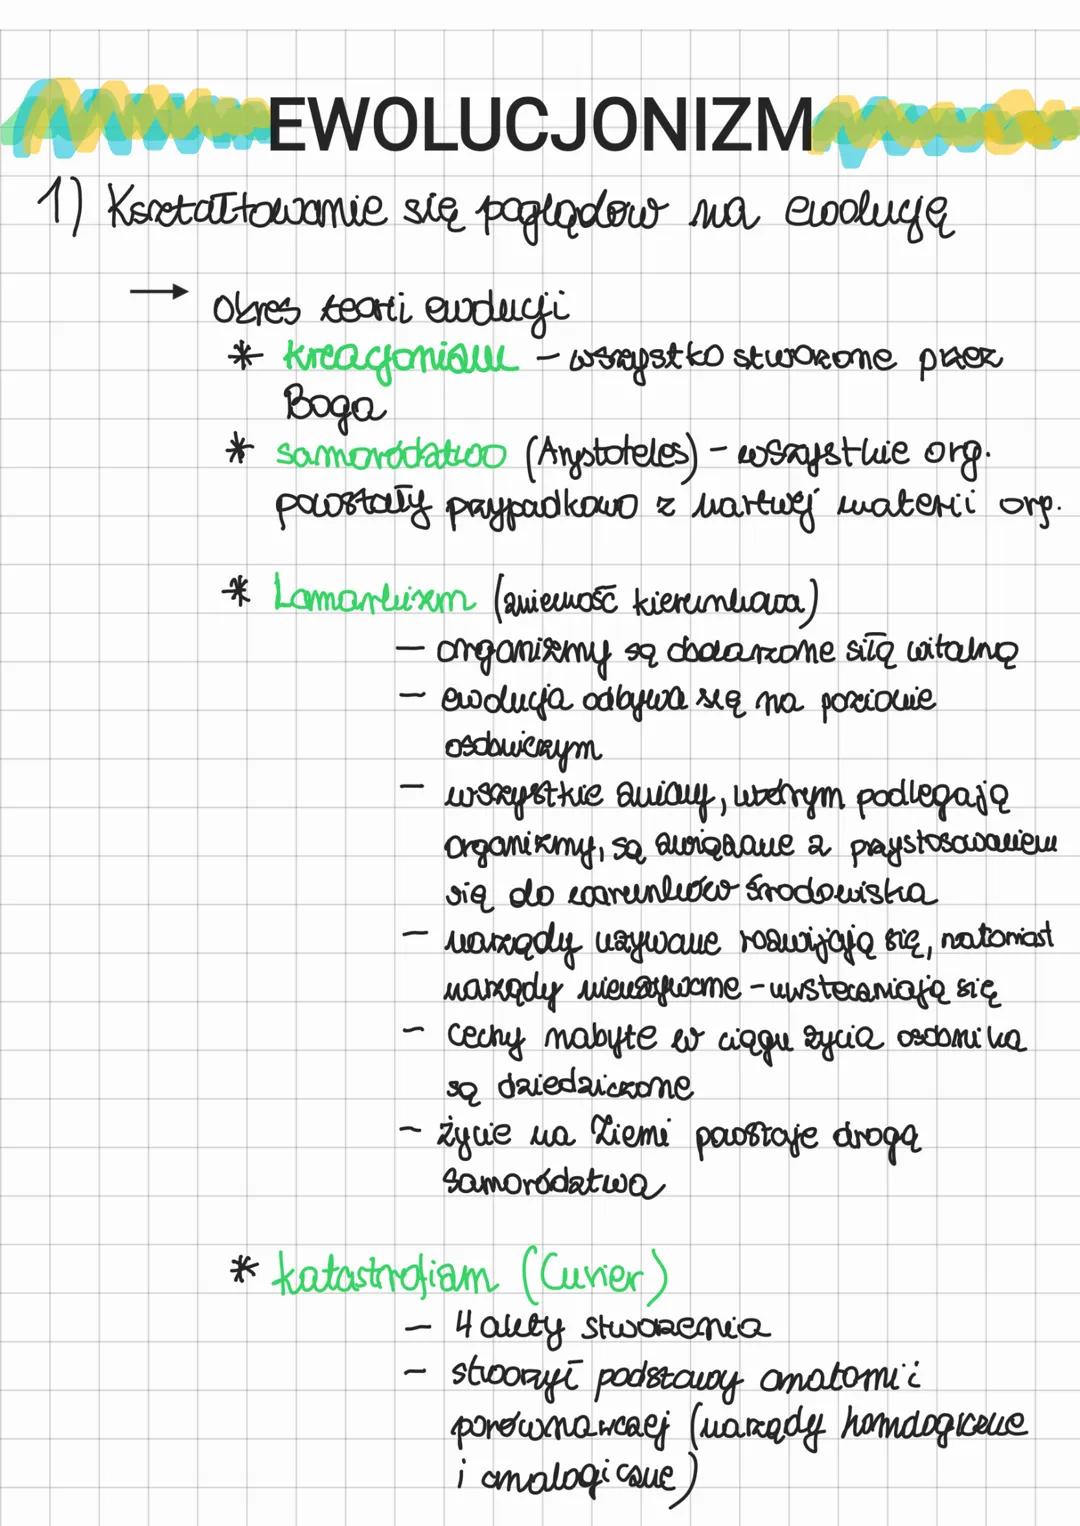 EWOLUCJONIZM
1) Kształtowanie się poglądów na ewolucję
→ Okres teorii ewolucji
* kreacjonizm - wszystko stworzone przez
Boga
* samorództwo (Arystoteles) - wszystkie org.
powstały przypadkowo z martwej materii org.
* Lamarkizm (zmienność kierunkowa)
- organizmy są obdarzone siłą witalną
- ewolucja odbywa się na poziomie
osobniczym
- wszystkie zmiany, którym podlegają
organizmy, są związane z przystosowaniem
się do warunków środowiska
- narządy używane rozwijają się, natomiast
narządy nieużywane - uwsteczniają się
- cechy nabyte w ciągu życia osobnika
są dziedziczone
- życie na Ziemi powstaje drogą
samorództwa
* katastrofizm (Cuvier)
- 4 akty stworzenia
- stworzył podstawy anatomii
porównawczej (narządy homologiczne
i analogiczne)